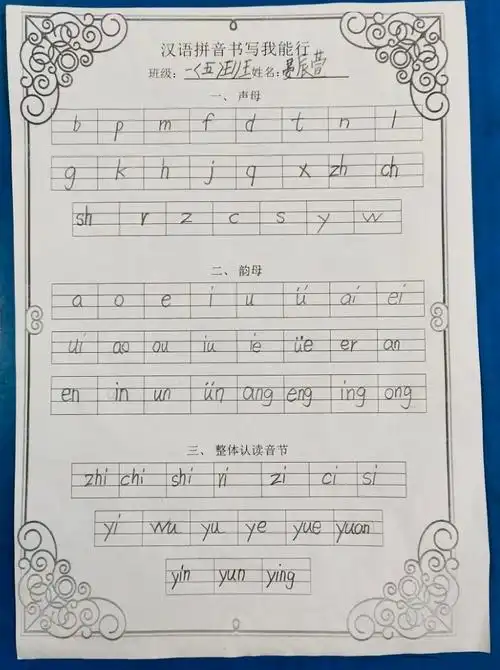 汉语拼音书写我能行
班级：一(五)班 姓名：辰萱
一、声母
b p m f d t n l
g k h j q x zh ch
sh r z c s y w
二、韵母
a o e i u ü ai ei
ui ao ou iu ie üe er an
en in un ün ang eng ing ong
三、整体认读音节
zhi chi shi ri zi ci si
yi wu yu ye yue yuan
yin yun ying